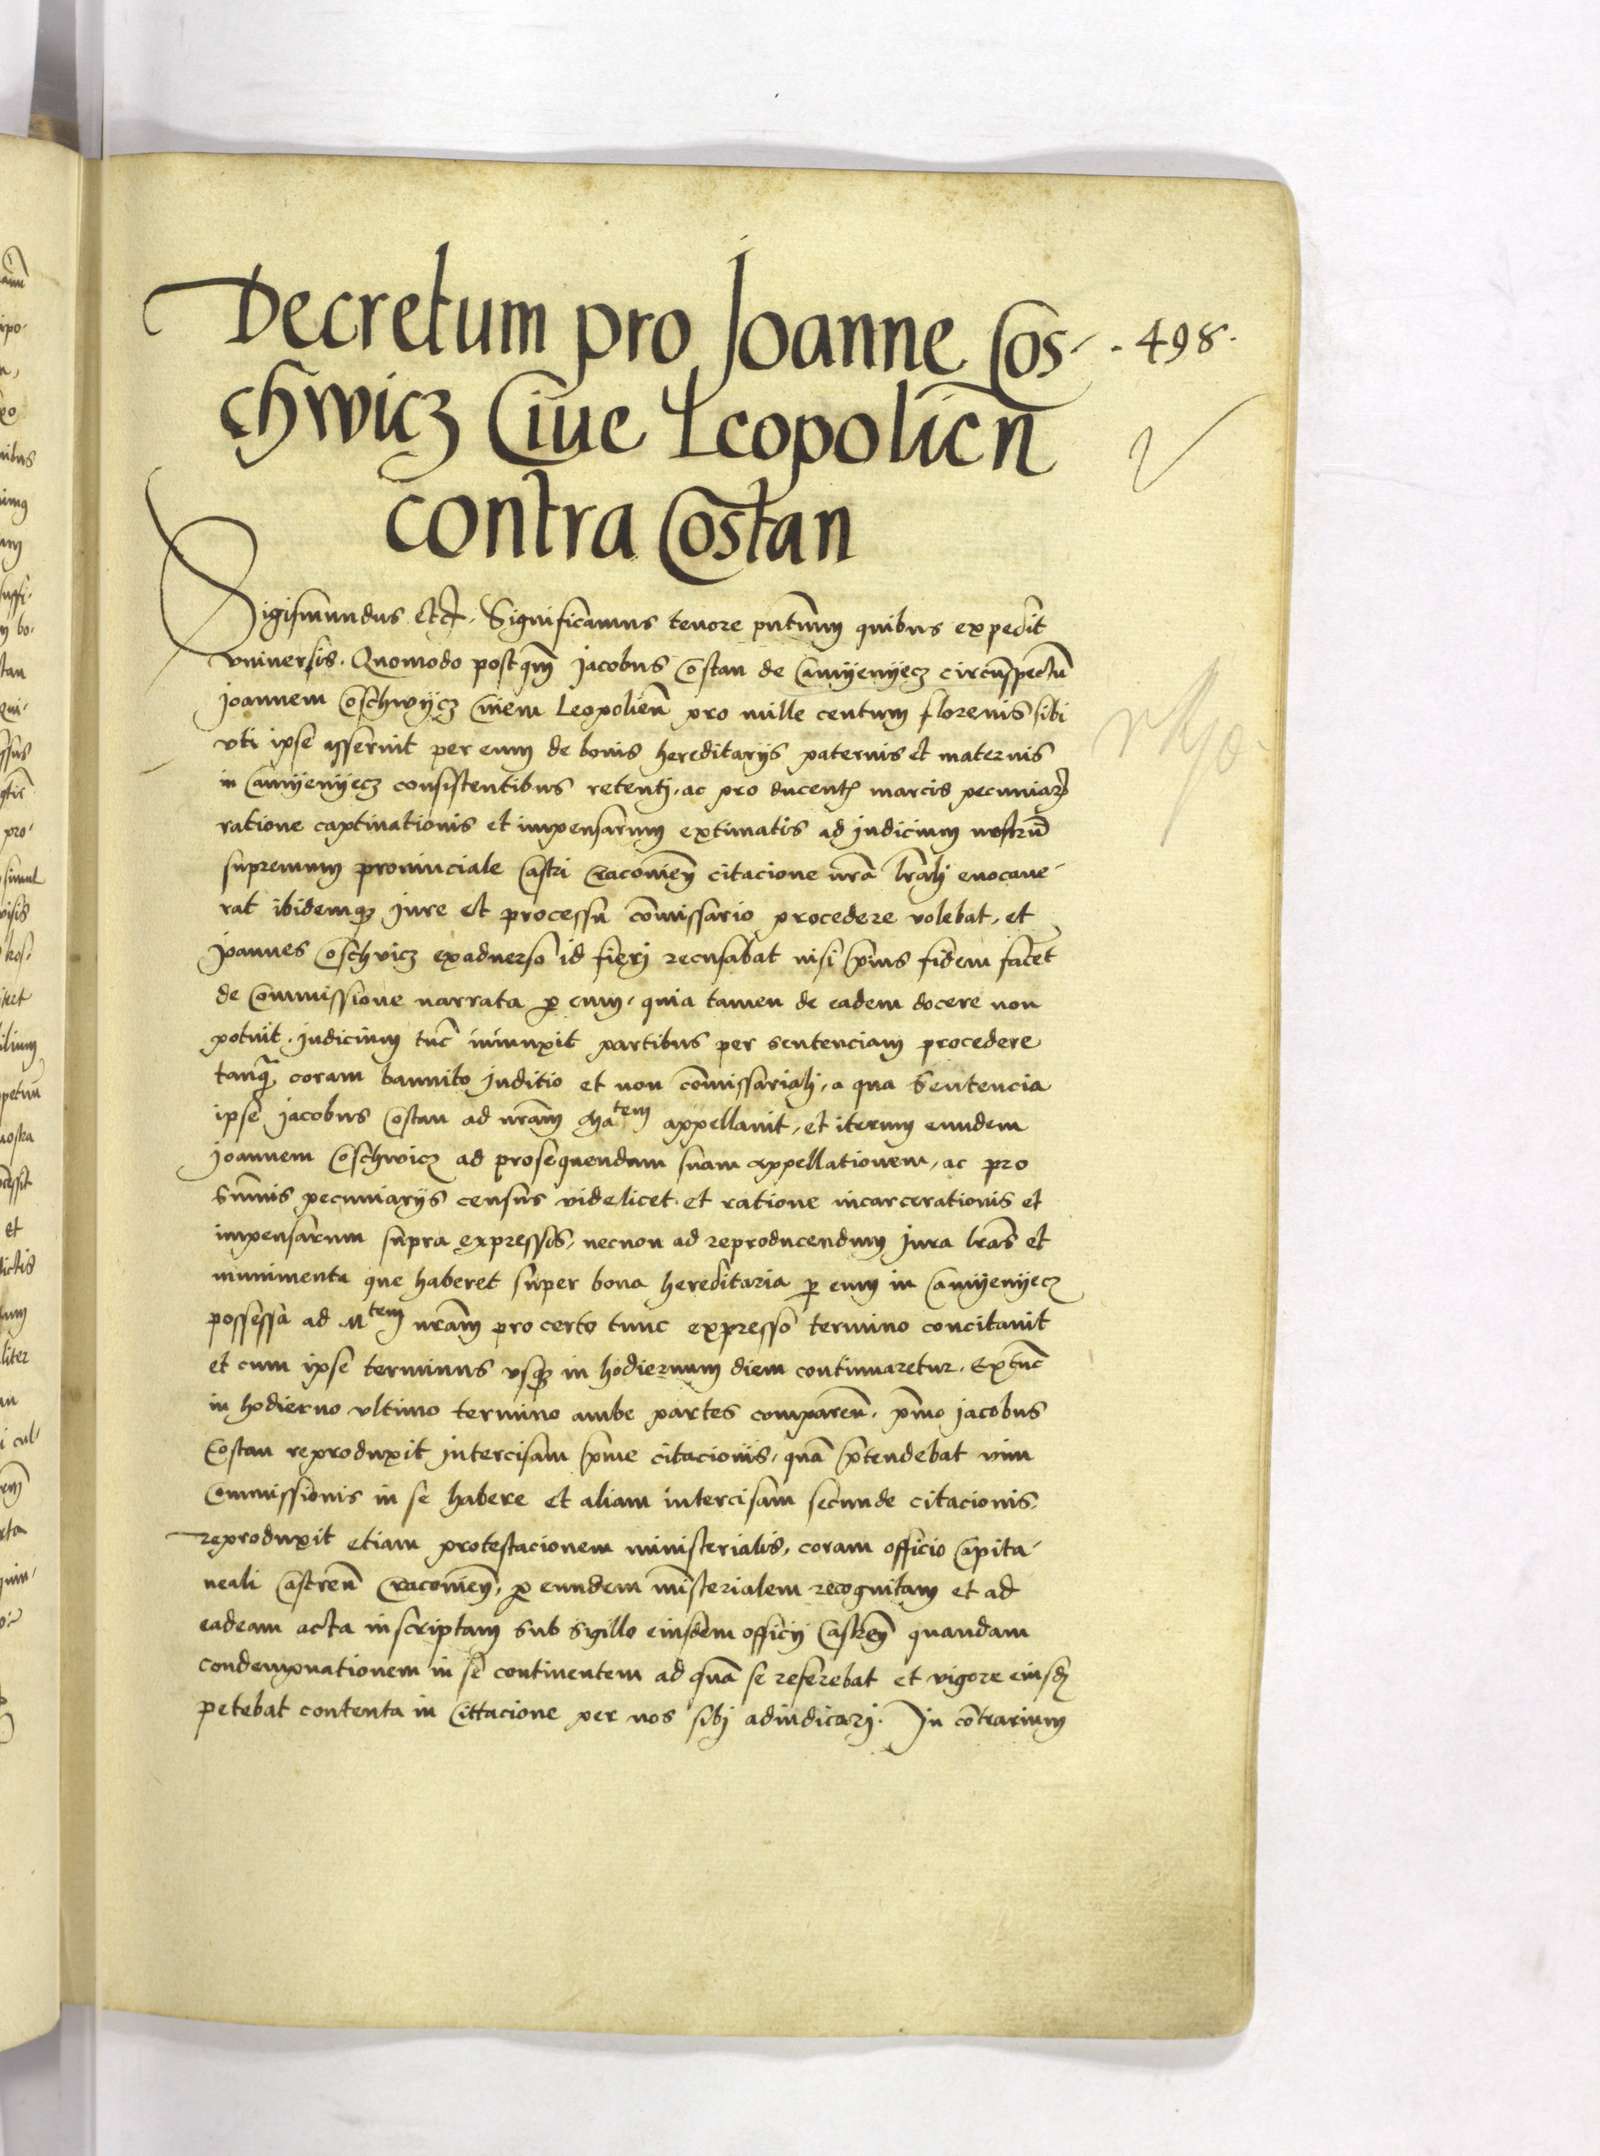 Decretum pro Joanne Cos-
.498.
chwicz Ciue Leopolien
contra Costan
Sigismundus etc. Significamus tenore pntium quibus expedit
vniuersis. Quomodo postqm Jacobus Costan de Camyenyecz circumspectu
Joannem Coschwycz ciuem Leopolien pro mille centum florenis sibi
vti ipse asseruit per eum de bonis hereditarijs paternis et maternis
in Camyenyecz consistentibus retentj, ac pro ducentis marcis pecuniar
ratione captiuationis et impensarum extimatis ad judicium nostru
supremum prouinciale Castri Cracouien citacione nra lralj euocaue-
rat ibidemq jure et processu comissario procedere volebat, et
Joannes Coschvicz exaduerso id fierj recusabat nisi prius fidem facet
de Commissione narrata p eum, quia tamen de eadem docere non
potuit. Judicium tuc iniunxit partibus per sentenciam procedere
tanq coram bannito juditio et non comissarialj, a qua Sentencia
ipse Jacobus Costan ad nram Matem appellauit, et iterum eundem
Joannem Coschwicz ad prosequendum suam appellationem, ac pro
Summis pecuniarijs census videlicet et ratione incarcerationis et
impensarum supra expressis, necnon ad reproducendum jura lras et
munimenta que haberet super bona hereditaria p eum in Camyenyecz
possessa ad Mtem nram pro certo tunc expresso termino concitauit
et cum ipse terminus vsq in hodiernum diem continuaretur. Extunc
in hodierno vltimo termino ambe partes comparen, pmo Jacobus
Costan reproduxit intercisam prime citacionis, qua ptendebat vim
Commissionis in se habere et aliam intercisam secunde citacionis,
reproduxit etiam protestacionem ministerialis, coram officio Capita-
neali Castren Cracouien, p eundem misterialem recognitam et ad
eadeam acta inscriptam sub sigillo eiusdem officij Castren quandam
condempnationem in se continentem ad qua se referebat et vigore eiusd
petebat contenta in Cittacione per nos sibj adiudicarj. In contrarium